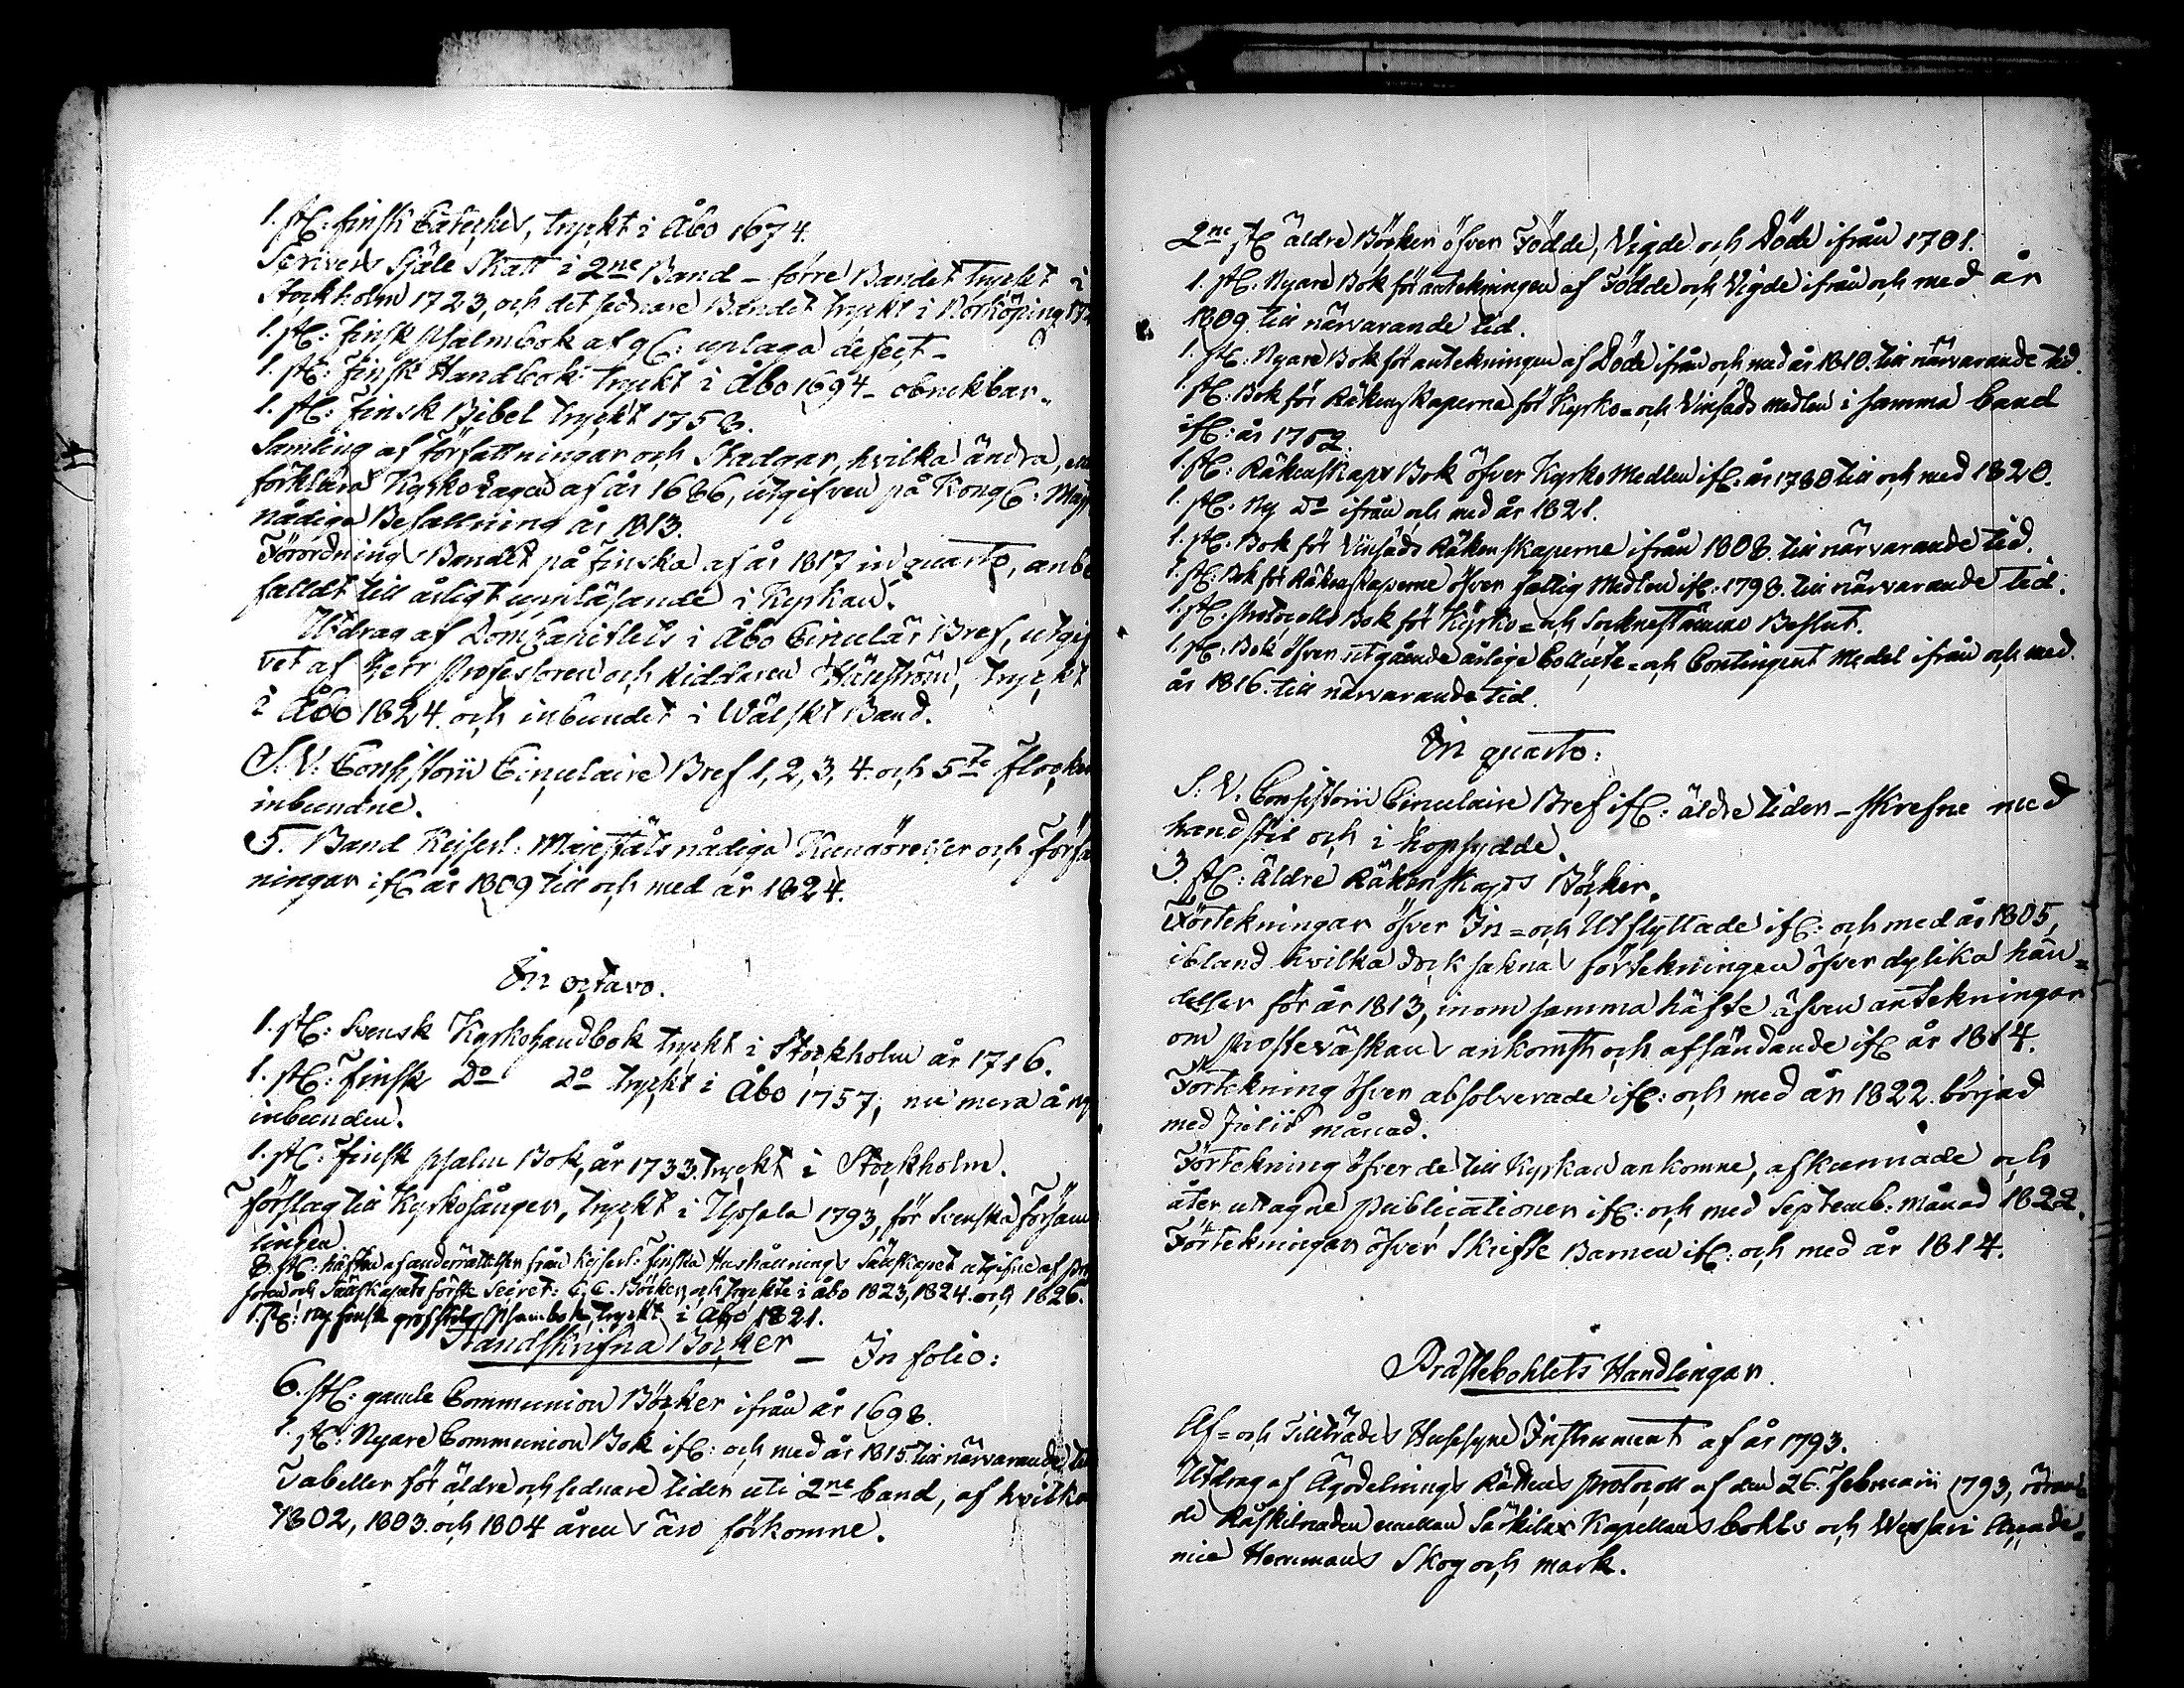 1. st: finsk Cateches, tryckt i Åbo 1674.
Scrivers Själe Skatt i 2ne Band – förre Bandet tryckt i
Stockholm 1723, och det sednare Bandet tryckt i Norköping 172
1. st: finsk Psalmbok af gl: uplaga defect –
1. st: Finsk Handbok tryckt i Åbo 1694 – obrukbar –
1. st: finsk Bibel tryckt 1758.
Samling af Författningar och Stadgar, hvilka ändra,
förklara Kyrko Lagen af år 1686, utgifven på Kongl: Maj
nådiga Befallning år 1813.
Förordnings Bandet på finska af år 1817 in quarto, anbe
falldt till årligt uppläsande i Kyrkan.
Utdrag af DomCapitlets i Åbo Circulär Bref, utgif
vet af Herr Professoren och Riddaren Hällström, tryckt
i Åbo 1824. och inbundet i Wälskt Band.
S: V: Consistorii Circulaire Bref 1, 2, 3, 4. och 5te Flocken
inbundne.
5. Band Kejserl: Majestäts nådiga Kungörelser och Förfa
ningar ifl år 1809 till och med år 1824.
In octavo.
1. st: Svensk Kyrkohandbok tryckt i Stockholm år 1716.
1. st: finsk Do Do tryckt i Åbo 1757, nu mera å ny
inbunden.
1. st: finsk psalm Bok, år 1733. tryckt i Stockholm.
Förslag till Kyrkosången, tryckt i Upsala 1793, för Svenska Försam
lingen.
8. st: häften af underrättelser från Kejserl: Finska Hushållnings Sällskapet utgifne af Pro
foren och Sällskapets förste Secret: C. C. Böcker, och tryckte i Åbo 1823, 1824. och 1826.
1. st: ny finsk grof stilig Psalmbok, tryckt i Åbo 1821.
Handskrifna Böcker – In folio:
6. st: gamle Communion Böcker ifrån år 1698.
1. st: Nyare Communion Bok ifl: och med år 1815. till närvarande tid
Tabeller för äldre och sednare tider uti 2ne band, af hvilka
1802, 1803. och 1804 årens äro förkomne.
2ne st äldre Böcker öfver Födde, Vigde och Döde ifrån 1701.
1. st: Nyare Bok för antekningen af Födde och Vigde ifrån och med år
1809. till närvarande tid.
1. st: Nyare Bok för antekningen af Döde ifrån och med år 1810. till närvarande tid.
1. st: Bok för Räkenskaperne för Kyrko- och Vinsäds medlen i samma band
ifl: år 1752.
1. st: Räkenskaps Bok öfver Kyrko Medlen ifl: år 1780 till och med 1820.
1. st: Ny Do ifrån och med år 1821.
1. st: Bok för Vinsäds Räkenskaperne ifrån 1808. till närvarande tid.
1. st: Bok för Räkenskaperne öfver fattig Medlen ifl: 1798. till närvarande tid.
1. st: Protocolls Bok för Kyrko- och Sockne stämmo Beslut.
1. st: Bok öfver utgående årlige Collecte- och Contingent Medel ifrån och med
år 1816. till närvarande tid.
In quarto:
S: V: Consistorii Circulaire Bref ifl: äldre tider – skrefne med
handstil och i hopsydde.
3. st: äldre Räkenskaps Böcker.
Förtekningar öfver In- och Utflyttade ifl: och med år 1805,
ibland hvilka dock saknas förtekningen öfver dylika hän-
delser för år 1813, inom samma häfte äfven antekningar
om Postväskans ankomst och afsändande ifl år 1814.
Förtekning öfver absolverade ifl: och med år 1822. börjad
med Julii månad.
Förtekning öfver de till Kyrkan ankomne, afkunnade och
åter uttagne Publicationer ifl: och med Septemb: Månad 1822.
Förtekningar öfver Skrifte Barnen ifl: och med år 1814.
Prästebohlets Handlingar.
Af- och Tillträdes Husesyne Instrument af år 1793.
Utdrag af Ägodelnings Rättens Protocoll af den 26. Februarii 1793, röran
de Råskilnaden emellan Särkilax Kapellans bohls och Wessari Acade-
mie Hemmans Skog och mark.